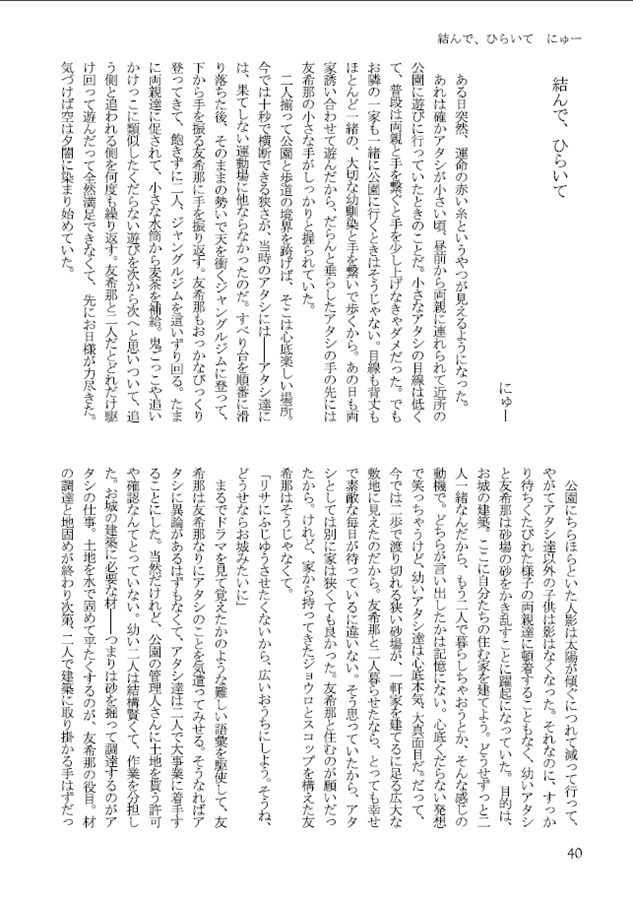 結んで、ひらいて　にゅー
結んで、ひらいて
にゅー
　ある日突然、運命の赤い糸というやつが見えるようになった。
　あれは確かアタシが小さい頃、昼前から両親に連れられて近所の
公園に遊びに行っていたときのことだ。小さなアタシの目線は低く
て、普段は両親と手を繋ぐと手を少し上げなきゃダメだった。でも
お隣の一家も一緒に公園に行くときはそうじゃない。目線も背丈も
ほとんど一緒の、大切な幼馴染と手を繋いで歩くから。あの日も両
家誘い合わせて遊んだから、だらんと垂らしたアタシの手の先には
友希那の小さな手がしっかりと握られていた。
　二人揃って公園と歩道の境界を跨げば、そこは心底楽しい場所。
今では十秒で横断できる狭さが、当時のアタシには――アタシ達に
は、果てしない運動場に他ならなかったのだ。すべり台を順番に滑
り落ちた後、そのままの勢いで天を衝くジャングルジムに登って、
下から手を振る友希那に手を振り返す。友希那もおっかなびっくり
登ってきて、飽きずに二人、ジャングルジムを這いずり回る。たま
に両親達に促されて、小さな水筒から麦茶を補給。鬼ごっこや追い
かけっこに類似したくだらない遊びを次から次へと思いついて、追
う側と追われる側を何度も繰り返す。友希那と二人だとどれだけ駆
け回って遊んだって全然満足できなくて、先にお日様が力尽きた。
気づけば空は夕闇に染まり始めていた。
　公園にちらほらといた人影は太陽が傾ぐにつれて減って行って、
やがてアタシ達以外の子供は影はなくなった。それなのに、すっか
り待ちくたびれた様子の両親達に頓着することもなく、幼いアタシ
と友希那は砂場の砂をかき乱すことに躍起になっていた。目的は、
お城の建築。ここに自分たちの住む家を建てよう。どうせずっと二
人一緒なんだから、もう二人で暮らしちゃおうとか、そんな感じの
動機で。どちらが言い出したかは記憶にない。心底くだらない発想
で笑っちゃうけど、幼いアタシ達は心底本気、大真面目だ。だって、
今では二歩で渡り切れる狭い砂場が、一軒家を建てるに足る広大な
敷地に見えたのだから。友希那と二人暮らせたなら、とっても幸せ
で素敵な毎日が待っているに違いない。そう思っていたから、アタ
シとしては別に家は狭くても良かった。友希那と住むのが願いだっ
たから。けれど、家から持ってきたジョウロとスコップを構えた友
希那はそうじゃなくて。
「リサにふじゆうさせたくないから、広いおうちにしよう。そうね、
どうせならお城みたいに」
　まるでドラマを見て覚えたかのような難しい語彙を駆使して、友
希那は友希那なりにアタシのことを気遣ってみせる。そうなればア
タシに異論があるはずもなくて、アタシ達は二人で大事業に着手す
ることにした。当然だけれど、公園の管理人さんに土地を貰う許可
や確認なんてとっていない。幼い二人は結構賢くて、作業を分担し
た。お城の建築に必要な材――つまりは砂を掘って調達するのがア
タシの仕事。土地を水で固めて平たくするのが、友希那の役目。材
の調達と地固めが終わり次第、二人で建築に取り掛かる手はずだっ
40